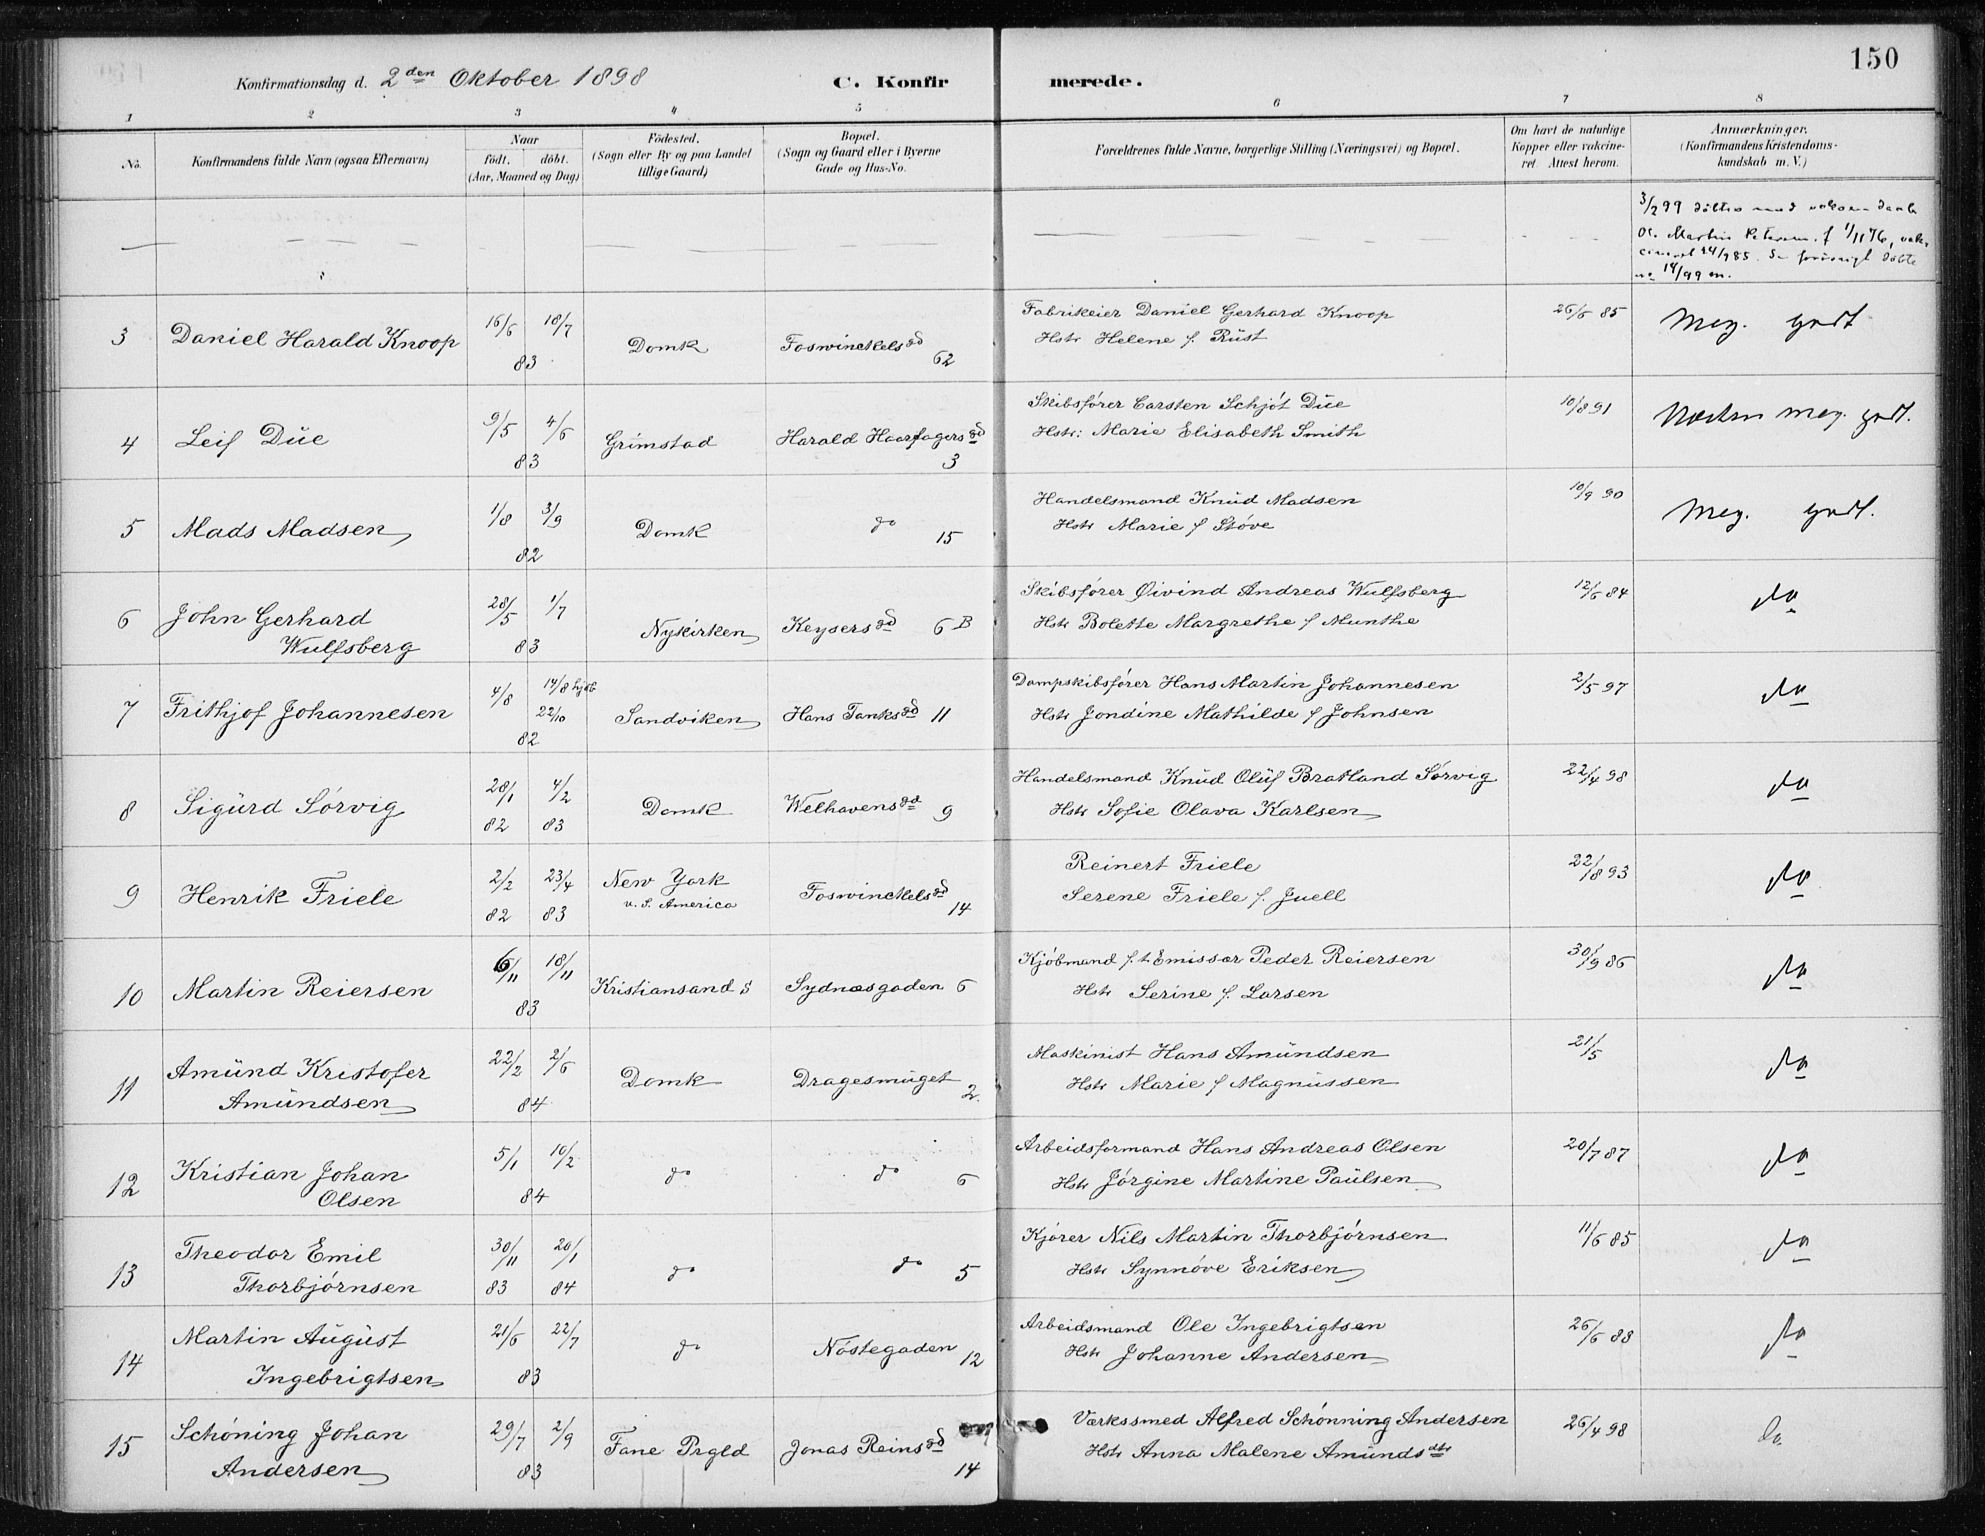 150
Konfirmationsdag d. 2den Oktober 1898 C. Konfirmerede.
1 2 3 4 5 6 7 8
No. Konfirmandens fulde Navn (ogsaa Efternavn) Naar født. døbt. (Aar, Maaned og Dag) Fødested. (Sogn eller By og paa Landet tillige Gaard) Bopæl. (Sogn og Gaard eller i Byerne Gade og Hus-No. Forældrenes fulde Navne, borgerlige Stilling (Næringsvei) og Bopæl. Om havt de naturlige Kopper eller vakcineret. Attest herom. Anmærkninger. (Konfirmandens Kristendomskundskab m. V.)
3/2 99 døbtes med voksen daab
Ol. Martin Petersen. f 1/11 76, vak-
3 Daniel Harald Knoop 16/6 18/7 83 Domk Foswinckelsgd 62 Fabrikeier Daniel Gerhard Knoop 26/6 85 Meg. godt
Hstr Helene f. Rüst
4 Leif Düe 9/5 4/6 83 Grimstad Harald Haarfagersgd 3 Skibsfører Carsten Schjøt Düe 10/8 91 Næsten meg. godt.
Hstr: Marie Elisabeth Smith
5 Mads Madsen 1/8 3/9 82 Domk do 15 Handelsmand Knüd Madsen 10/9 90 Meg. godt.
Hstr Marie f Støve
6 John Gerhard Wulfsberg 28/5 1/7 83 Nykirken Keysersgd 6 B Skibsfører Øivind Andreas Wulfsberg 12/6 84 do
Hstr Bolette Margrethe f Munthe
7 Frithjof Johannesen 4/8 14/8 hjdb 22/10 82 Sandviken Hans Tanksgd 11 Dampskibsfører Hans Martin Johannesen 2/5 97 do
Hstr Jondine Mathilde f Johnsen
8 Sigürd Sørvig 28/1 82 4/2 83 Domk Welhavensgd 9 Handelsmand Knüd Olüf Bratland Sørvig 22/4 98 do
Hstr Sofie Olava Karlsen
9 Henrik Friele 2/2 82 23/4 83 New York v. S. America Foswinckelsgd 14 Reinert Friele 22/8 93 do
Serene Friele f. Juell
10 Martin Reiersen 6/11 18/11 83 Kristiansand S Sydnæsgaden 6 Kjøbmand f. t. Emissær Peder Reiersen 30/9 86 do
Hstr Serine f. Larsen
11 Amünd Kristofer Amündsen 22/2 2/6 84 Domk Dragesmüget 2 Maskinist Hans Amündsen 21/5 do
Hstr Marie f Magnüssen
12 Kristian Johan Olsen 5/1 10/2 84 do do 6 Arbeidsformand Hans Andreas Olsen 20/7 87 do
Hstr Jørgine Martine Paülsen
13 Theodor Emil Thorbjørnsen 30/11 83 20/1 84 do do 5 Kjører Nils Martin Thorbjørnsen 11/6 85 do
Hstr Synnøve Eriksen
14 Martin Aügüst Ingebrigtsen 21/6 22/7 83 do Nøstegaden 12 Arbeidsmand Ole Ingebrigtsen 26/6 88 do
Hstr Johanne Andersen
15 Schøning Johan Andersen 29/7 2/9 83 Fane Prgld Jonas Reinsgd 14 Værkssmed Alfred Schønning Andersen 26/4 98 do
Hstr Anna Malene Amündsdtr